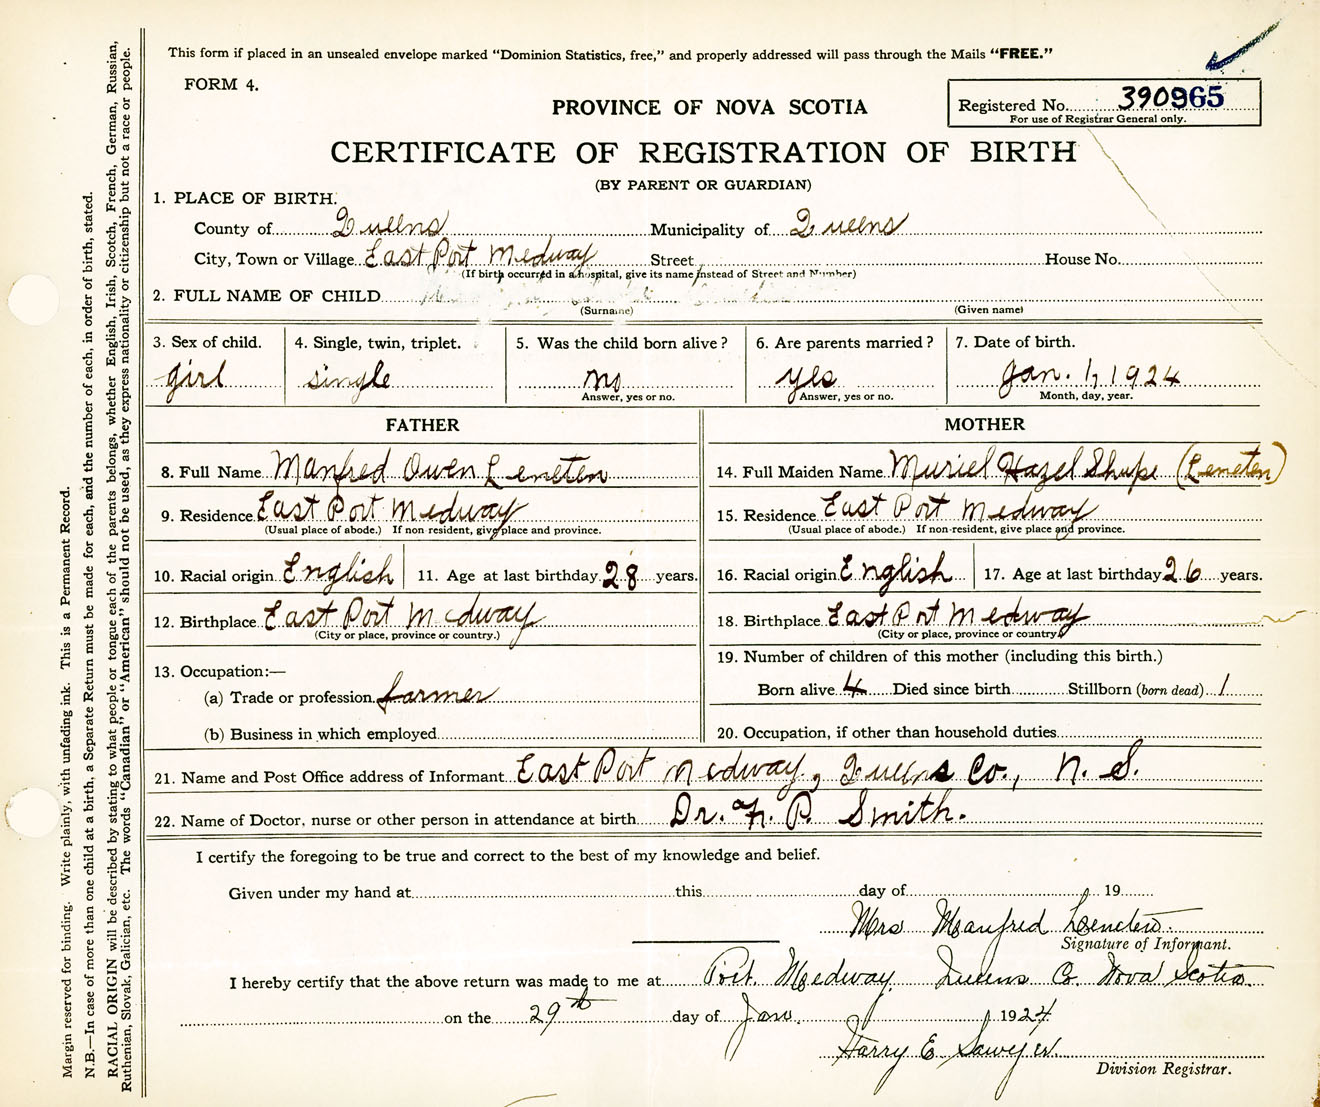 This form if placed in an unsealed envelope marked “Dominion Statistics, free,” and properly addressed will pass through the Mails “FREE.”
FORM 4.
PROVINCE OF NOVA SCOTIA
Registered No. 390965
For use of Registrar General only.
CERTIFICATE OF REGISTRATION OF BIRTH
(BY PARENT OR GUARDIAN)
1. PLACE OF BIRTH.
County of Queens Municipality of Queens
City, Town or Village East Port Medway Street House No.
(If birth occurred in a hospital, give its name instead of Street and Number)
2. FULL NAME OF CHILD
(Surname) (Given name)
3. Sex of child. 4. Single, twin, triplet. 5. Was the child born alive? 6. Are parents married? 7. Date of birth.
girl single no yes Jan. 1, 1924
Answer, yes or no. Answer, yes or no. Month, day, year.
FATHER MOTHER
8. Full Name Manfred Owen Leneten 14. Full Maiden Name Muriel Hazel Shupe (Leneten)
9. Residence East Port Medway 15. Residence East Port Medway
(Usual place of abode.) If non-resident, give place and province. (Usual place of abode.) If non-resident, give place and province.
10. Racial origin English 11. Age at last birthday 28 years. 16. Racial origin English 17. Age at last birthday 26 years.
12. Birthplace East Port Medway 18. Birthplace East Port Medway
(City or place, province or country.) (City or place, province or country.)
13. Occupation:—
(a) Trade or profession farmer
(b) Business in which employed
19. Number of children of this mother (including this birth.)
Born alive 4 Died since birth Stillborn (born dead) 1
20. Occupation, if other than household duties
21. Name and Post Office address of Informant East Port Medway, Queens Co., N. S.
22. Name of Doctor, nurse or other person in attendance at birth Dr. N. P. Smith.
I certify the foregoing to be true and correct to the best of my knowledge and belief.
Given under my hand at this day of 19
Mrs Manfred
Signature of Informant.
I hereby certify that the above return was made to me at Port Medway Queens Co. Nova Scotia
on the 29th day of Jan. 1924
Harry E. Sawyer
Division Registrar.
Margin reserved for binding. Write plainly, with unfading ink. This is a Permanent Record.
N.B.—In case of more than one child at a birth, a Separate Return must be made for each, and the number of each, in order of birth, stated.
RACIAL ORIGIN will be described by stating to what people or tongue each of the parents belongs, whether English, Irish, Scotch, French, German, Russian,
Ruthenian, Slovak, Galician, etc. The words “Canadian” or “American” should not be used, as they express nationality or citizenship but not a race or people.